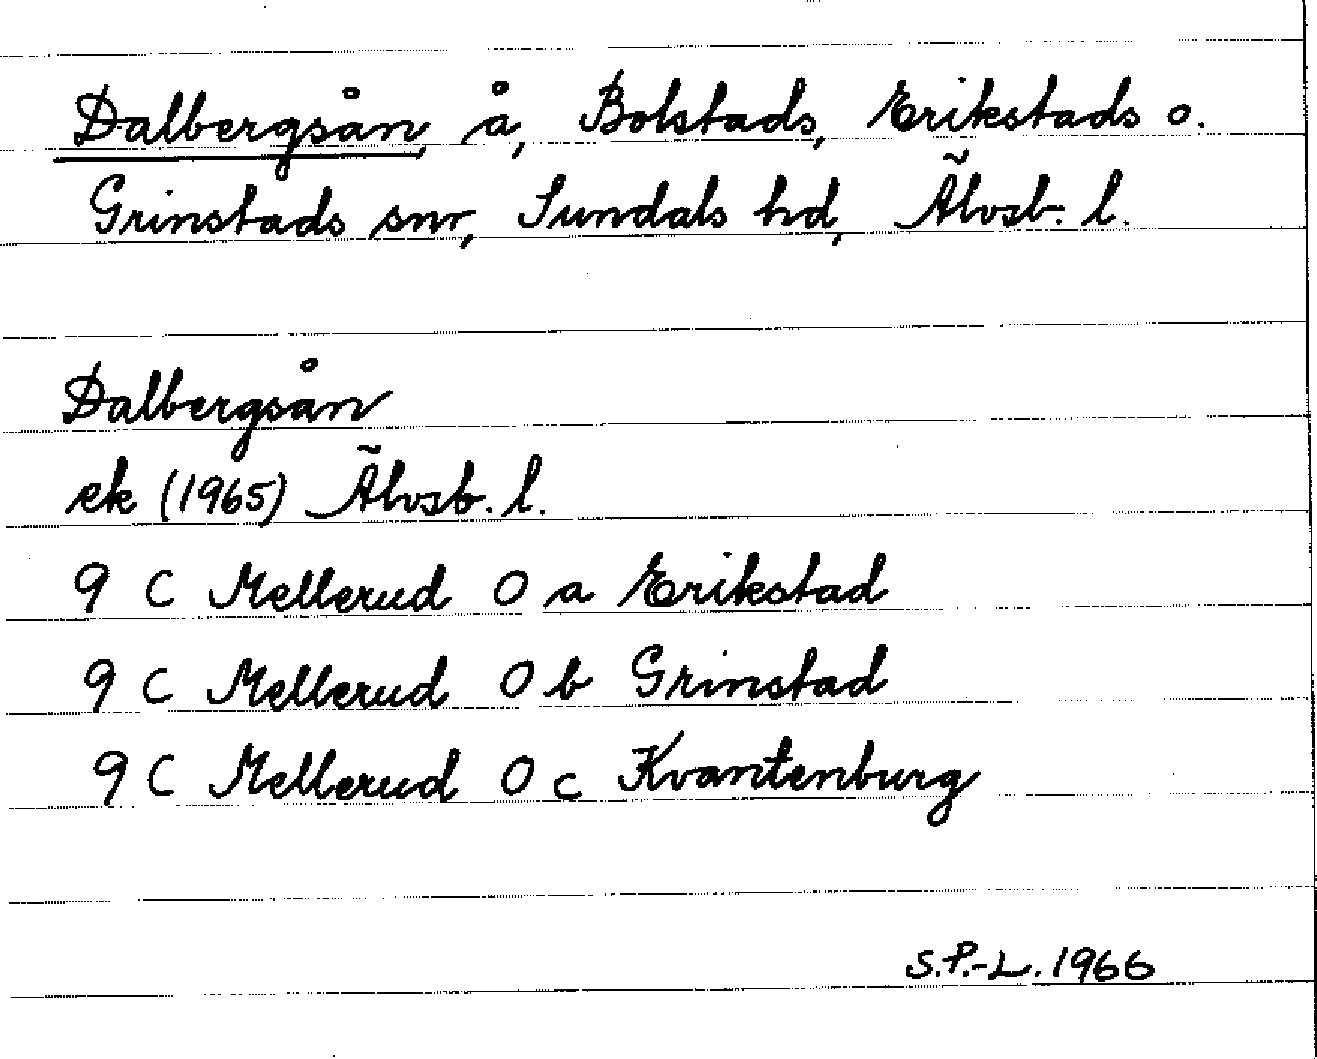 Dalbergsån, å, Bolstads, Erikstads o.
Grinstads snr, Sundals hd, Älvsb. l.
Dalbergsån
ek (1965) Älvsb. l.
9 C Mellerud 0 a Erikstad
9 C Mellerud 0 b Grinstad
9 C Mellerud 0 c Kvantenburg
S.P.-L. 1966